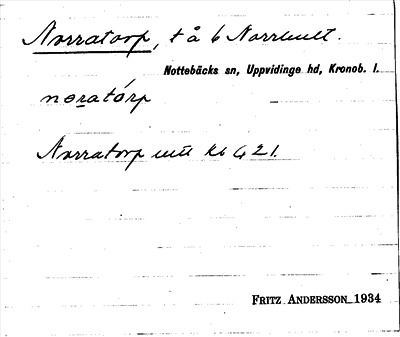 Norratorp, t å 6 Norrhult.
Nottebäcks sn, Uppvidinge hd, Kronob. l.
noratórp
Norratorp utü kb 421.
FRITZ ANDERSSON 1934